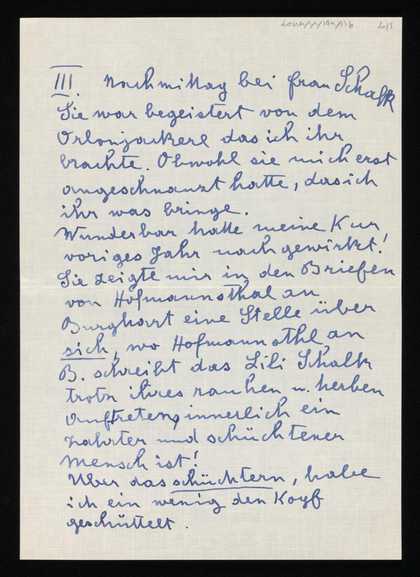 III. Nachmittag bei Frau Schalk
Sie war begeistert von dem
Orlonjackerl das ich ihr
brachte. Obwohl sie mich erst
angeschnauzt hatte, das ich
ihr was bringe.
Wunderbar hatte meine Kur,
voriges Jahr nachgewirkt!
Sie zeigte mir in den Briefen
von Hofmannsthal an
Burghart eine Stelle über
sich, wo Hofmannsthl an
B. schreibt das Lili Schalk
trotz ihres rauhen u. herben
Auftretens, innerlich ein
zahrter und schüchtener
Mensch ist!
Über das schüchtern, habe
ich ein wenig den Kopf
geschüttelt.